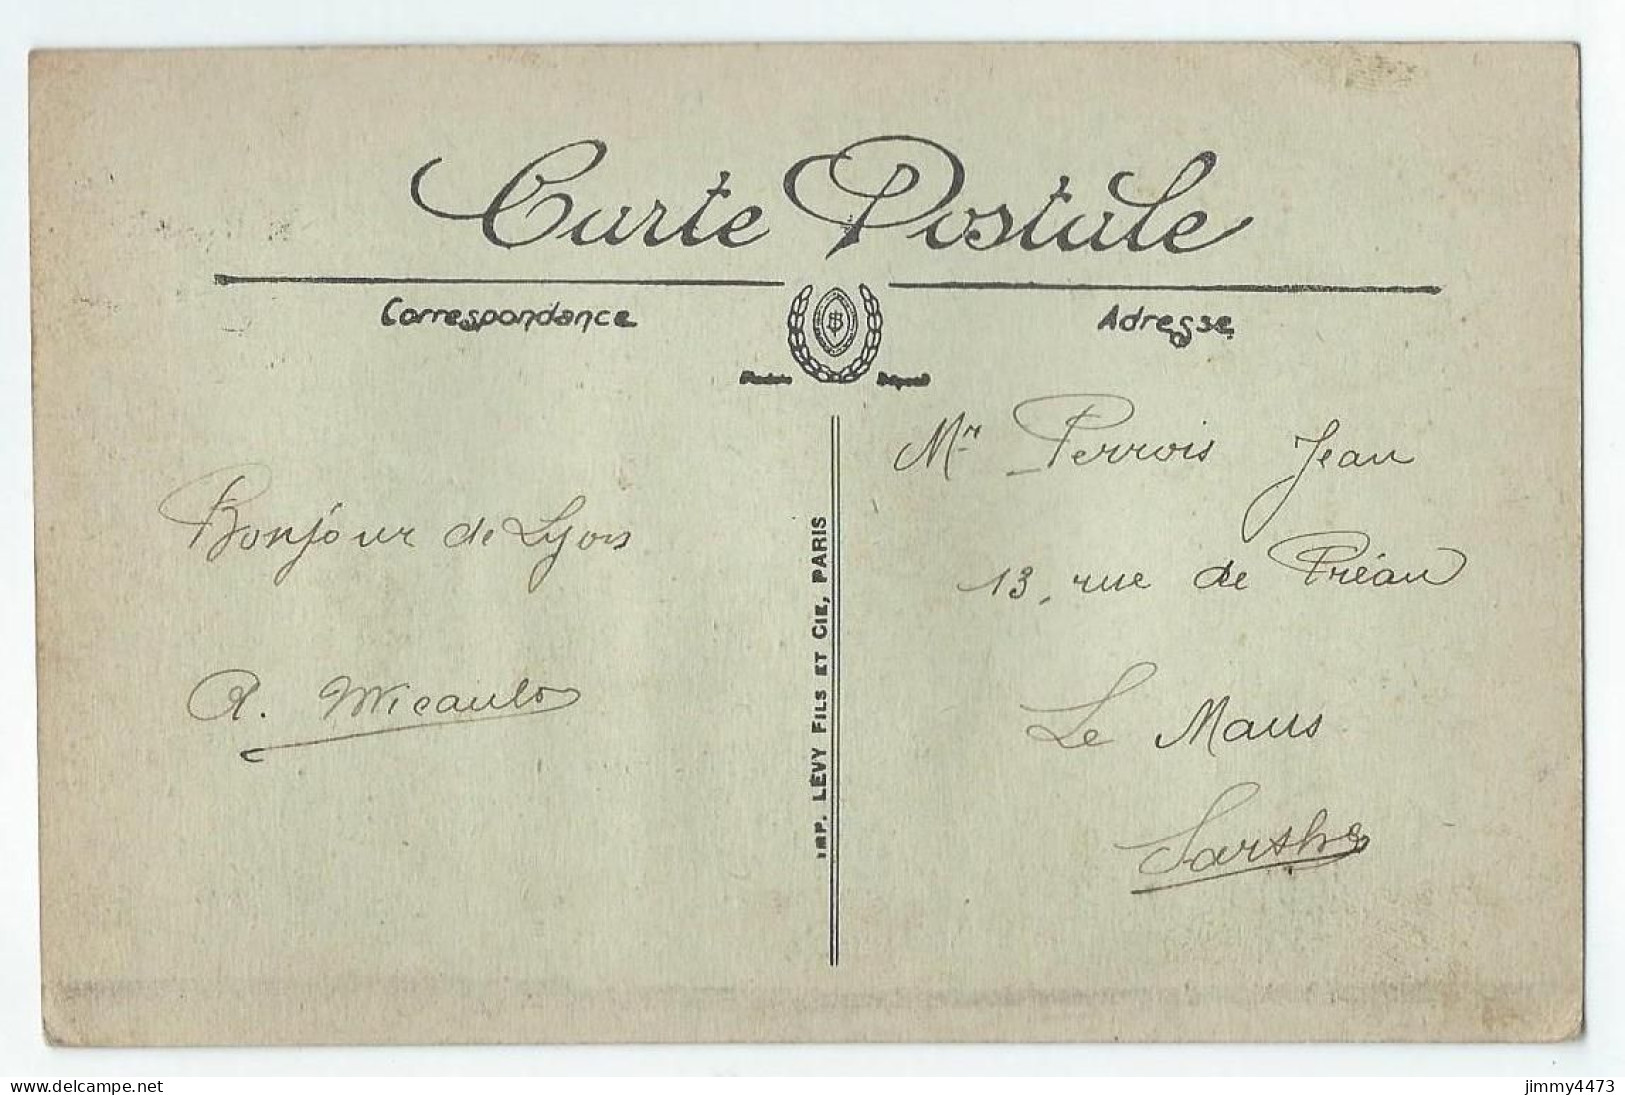 Carte Postale
Correspondance
Adresse
Bonjour de Lyon
A. Micault
IMP. LÉVY FILS ET CIE, PARIS
Mr Perrois Jean
13, rue de Préau
Le Mans
Sarthe
www.delcampe.net
jimmy4473